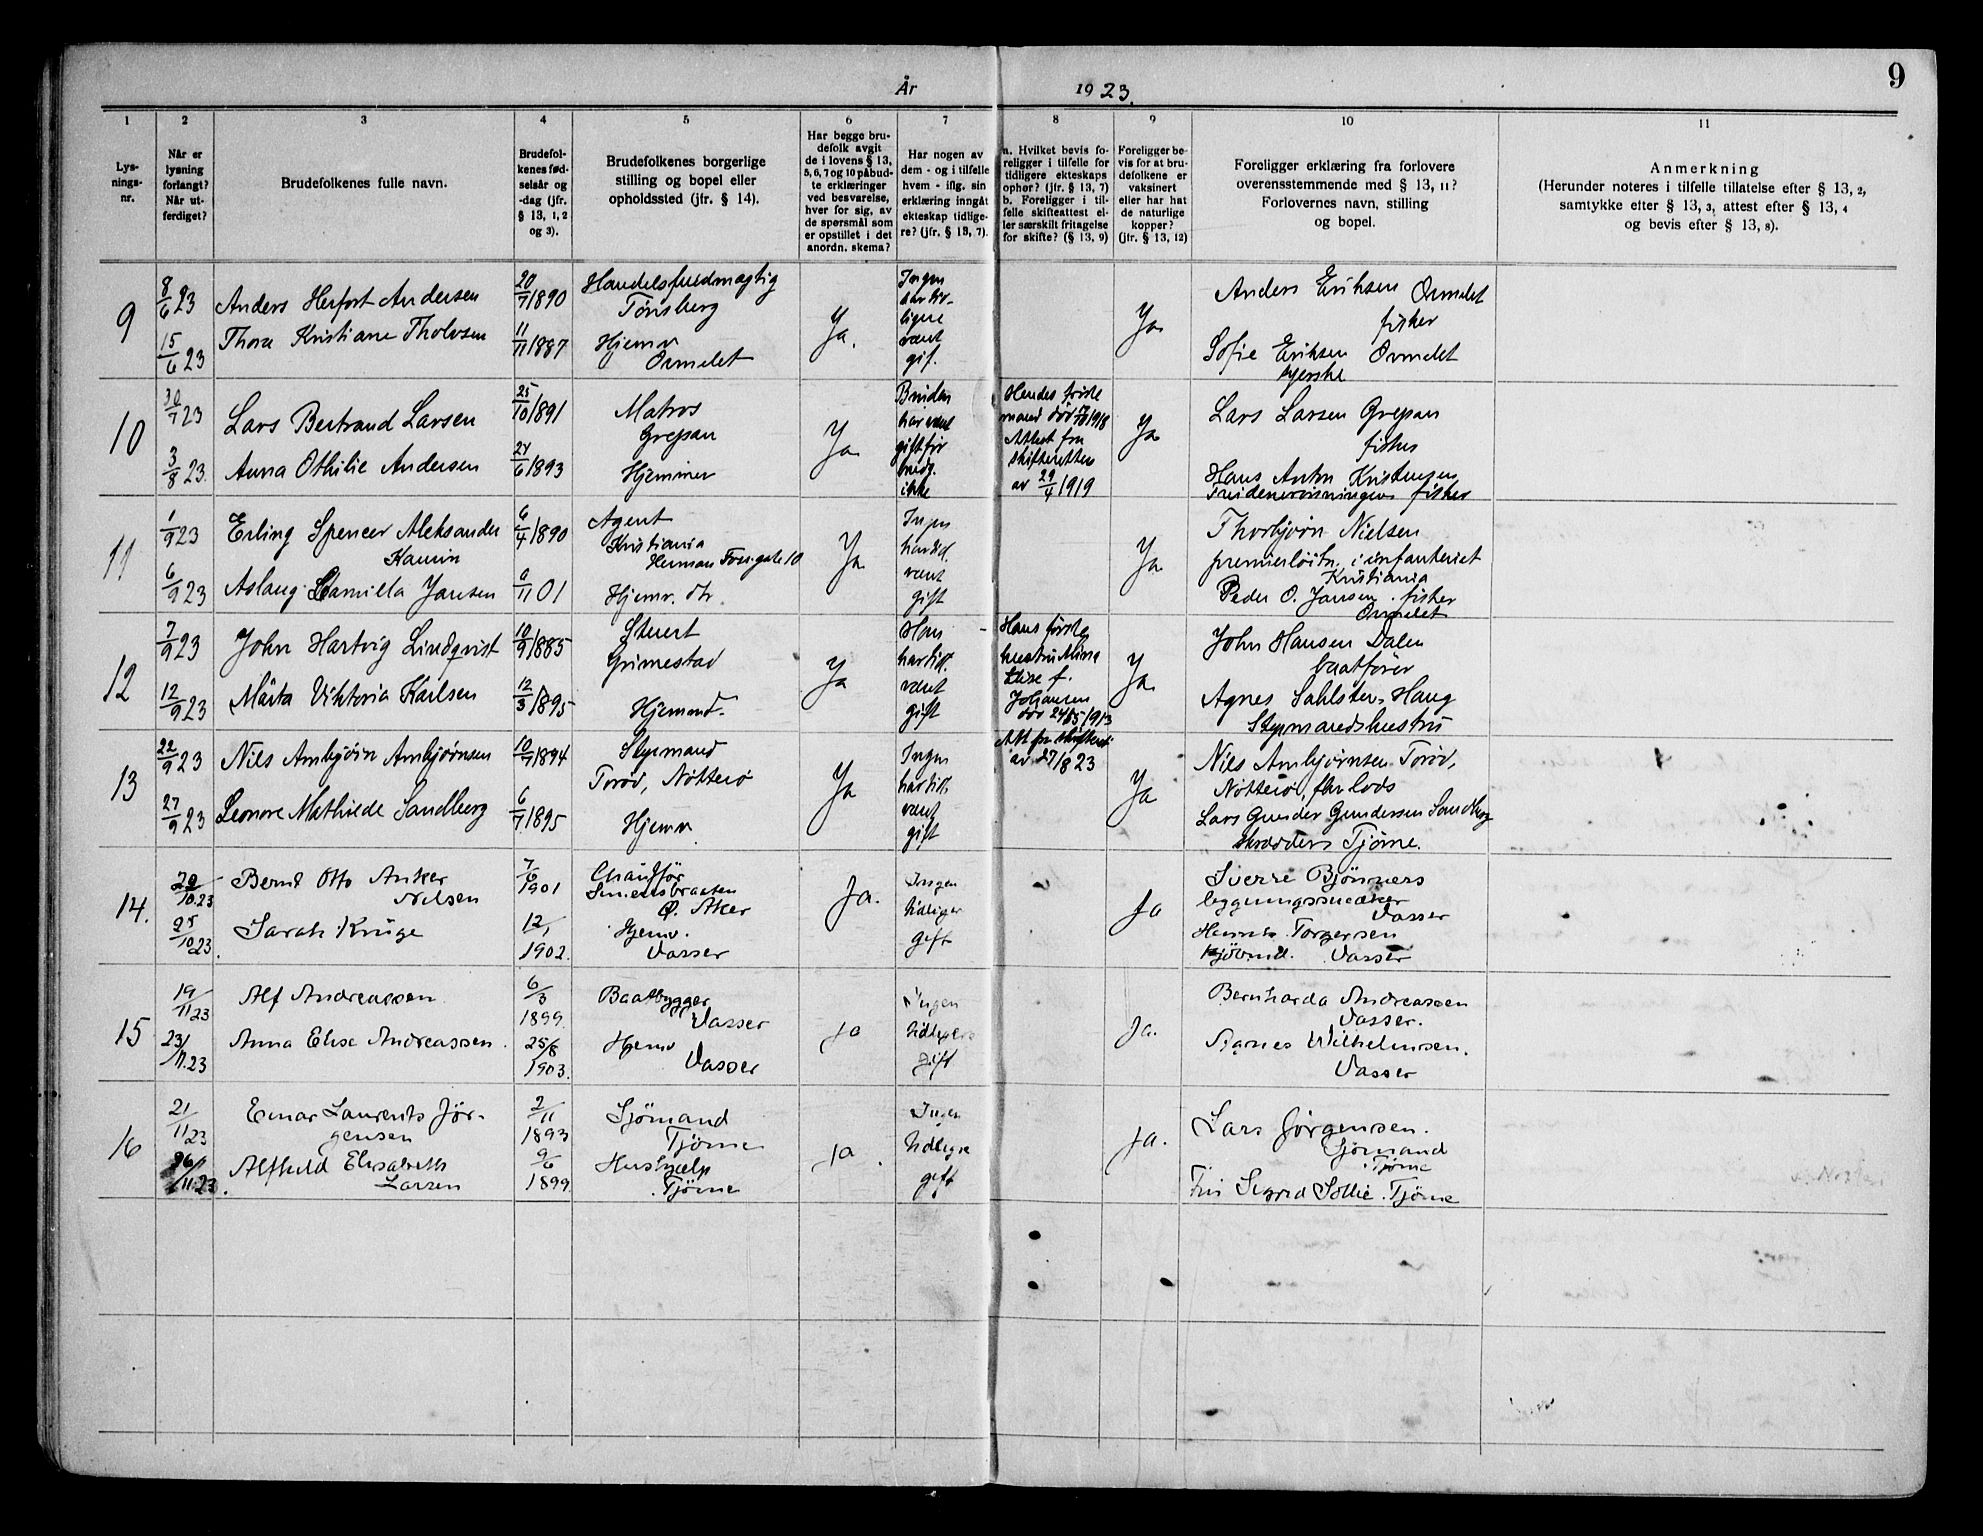 9
År 1923.
1
2
3
4
5
6
7
8
9
10
11
Lys-
nings-
nr.
Når er
lysning
forlangt?
Når ut-
ferdiget?
Brudefolkenes fulle navn.
Brudefol-
kenes fød-
selsår og
-dag (jfr.
§ 13, 1, 2
og 3).
Brudefolkenes borgerlige
stilling og bopel eller
opholdssted (jfr. § 14).
Har begge bru-
defolk avgit
de i lovens § 13,
5, 6, 7 og 10 påbud-
te erklæringer
ved besvarelse,
hver for sig, av
de spørsmål som
er opstillet i det
anordn. skema?
Har nogen av
dem - og i tilfelle
hvem - iflg. sin
erklæring inngåt
ekteskap tidlige-
re? (jfr. § 13, 7).
a. Hvilket bevis fo-
religger i tilfelle for
tidligere ekteskaps
ophør? (jfr. § 13, 7)
b. Foreligger i til-
felle skifteattest el-
ler særskilt fritagelse
for skifte? (§ 13, 9)
Foreligger be-
vis for at bru-
defolkene er
vaksinert
eller har hat
de naturlige
kopper?
(jfr. § 13, 12)
Foreligger erklæring fra forlovere
overensstemmende med § 13, 11?
Forlovernes navn, stilling
og bopel.
Anmerkning
(Herunder noteres i tilfelle tillatelse efter § 13, 2,
samtykke efter § 13, 3, attest efter § 13, 4
og bevis efter § 13, 8).
9
8/6 23
15/6 23
Anders Herfort Andersen
Thora Kristiane Tholvsen
20/7 1890
11/11 1887
Handelsfuldmægtig
Tönsberg
Hjemv
Ormelet
Ja.
Ingen
har tid-
ligere
vært
gif.
Ja
Anders Eriksen Ormelet
fisker
Sofie Eriksen Ormelet
10
30/7 23
3/8 23.
Lars Bertrand Larsen
Anna Othilie Andersen
25/10 1891
24/6 1893
Matros
Grepan
Hjemme
Ja
Bruden
har vært
gift før
ikke
Hendes første
mand död 7/10 1918
Attest fra
skifteretten
av 29/4 1919
Ja
Lars Larsen Grepan
fisker
Hans Anton Kristensen
fisker
11
1/9 23
6/9 23
Erling Spencer Aleksander
Kamin
Aslaug Camilla Jansen
6/4 1890
6/11 01
Agent
Kristiania
Herman Fossgate 10
Hjemv. dtr.
Ja
Ingen
har tid.
vært
gift
Ja
Thorbjørn Nielsen
premierlöitn. i infanteriet
Kristiania
Peder O. Jansen . fisker
Ormelet
12
7/9 23
12/9 23
John Hartvig Lindqvist
Märta Viktoria Karlsen
10/9 1885
12/3 1895
Stuert
Grimestad
Hjemmev.
Ja
Han
har tidl.
vært
gift
Hans første
hustru Mina
Elise f.
Johansen
död 24/5 1913
Att. fra skifteret
av d 7/8 23
Ja.
John Hansen Dalen
baatfører
Agnes Sahlsten, Haug
Styrmandshustru
13
22/9 23
27/9 23
Nils Ambjörn Ambjörnsen
Leonore Mathilde Sandberg
10/7 1894
6/7 1895
Styrmand
Torød, Nötterö
Hjemv
Ja
Ingen
har tidl.
vært
gift
Ja
Nils Ambjørnsen Torød,
Nötterö, fhv lods
Lars Gunder Gundersen Sandberg
skrædder Tjöme.
14.
20/10.23
25/10 23.
Bernt Otto Anker
Nilsen
Sarah Krüge
7/6
1901
12/1
1902.
Chauffør
Smedsbraaten
Ø. Aker
Hjemv.
Vasser
Ja.
Ingen
tidliger
gift
Ja
Sverre Bjönness
bygningssnedker
Vasser
Torgersen
Kjöbmd. Vasser
15
19/11 23
23/11.23
Alf Andreassen
Anna Elise Andreassen.
6/3
1899.
25/8
1903.
Baatbygger
Vasser
Hjemv
Vasser
ja
Ingen
tidligere
gift
Ja.
Bernharda Andreassen
Vasser.
Signes Wilhelmsen.
Vasser
16
21/11 23
26/11.23.
Einar Laurents Jör-
gensen
Alfhild Elisabeth
Larsen
2/11
1893
9/6
1899
Sjömand
Tjöme
Hushjælp
. Tjöme
ja.
Ingen
tidligre
gift
ja.
Lars Jörgensen.
Sjömand
Tjöme
Frü Sigrid Sollie. Tjöme